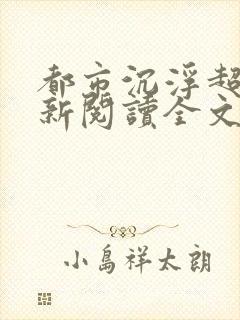 都市沉浮超
新閱讀全文
小島祥太朗